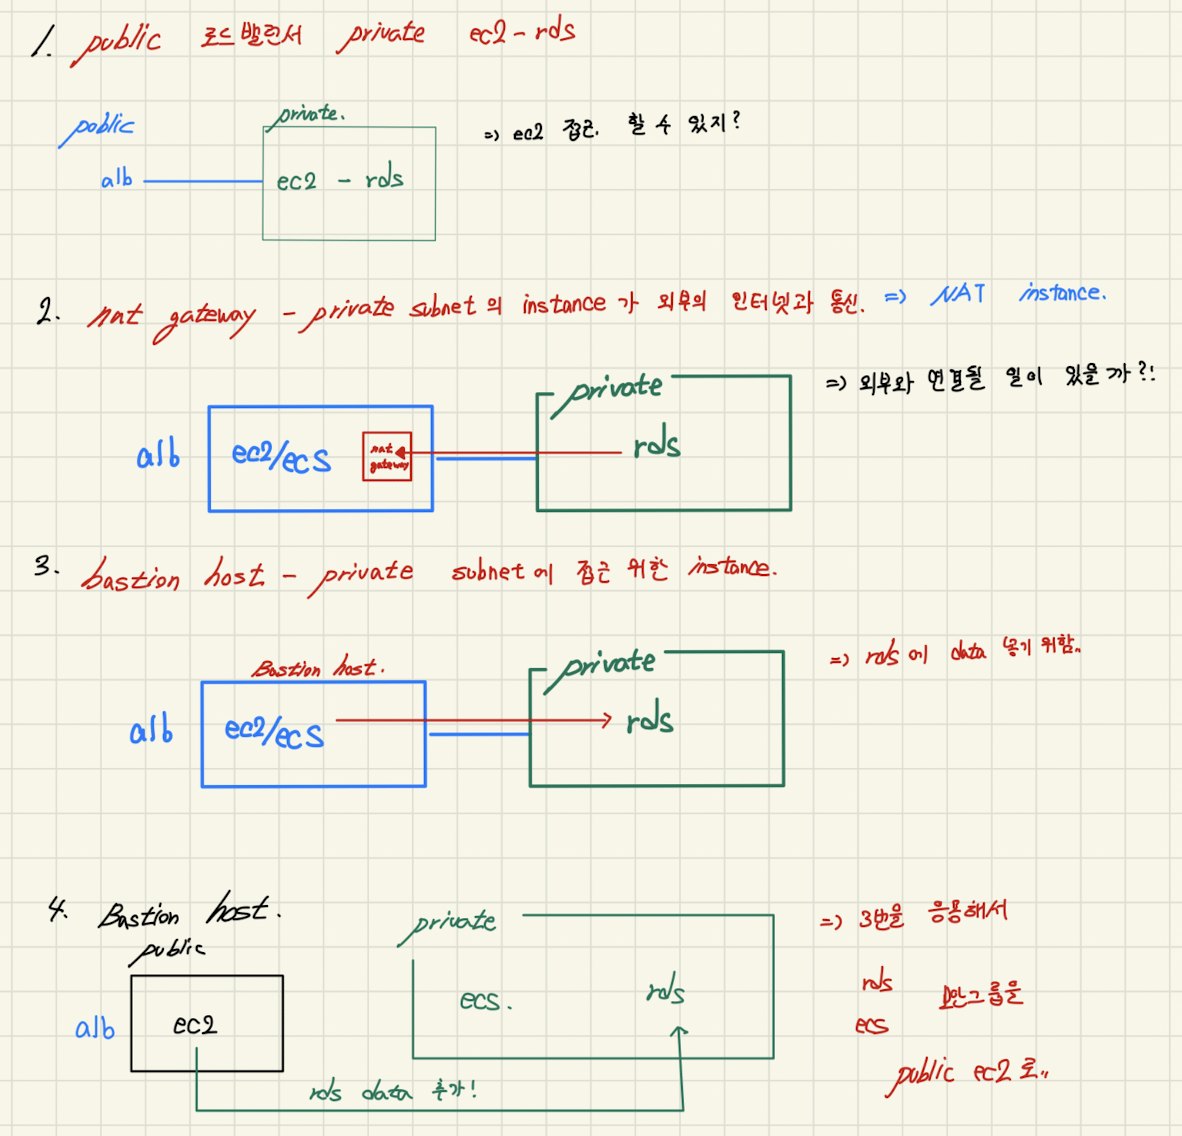 1. public 로드밸런서 private ec2 - rds
public
private.
alb
ec2 - rds
=> ec2 접근. 할 수 있지?
2. nat gateway - private subnet 의 instance 가 외부의 인터넷과 통신. => NAT instance.
=> 외부와 연결될 일이 있을까?!
private
alb
ec2/ecs
nat
gateway
rds
3. bastion host - private subnet에 접근 위한 instance.
=> rds에 data 넣기 위함..
Bastion host.
private
alb
ec2/ecs
rds
4. Bastion host.
public
private
alb
ec2
ecs.
rds
rds data 추가!
=> 3번을 응용해서
rds
ecs
보안그룹을
public ec2로..